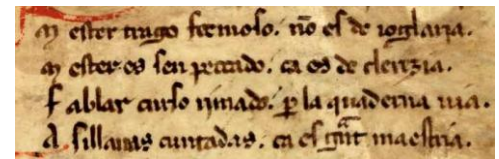 M ester trago fermoso. nõ es de ioglaria.
M ester es sen peccado. ca es de clerizia.
F ablar curso rimado. ꝑ la quaderna uia.
A sillauas cuntadas. ca es gᵃnt maestria.